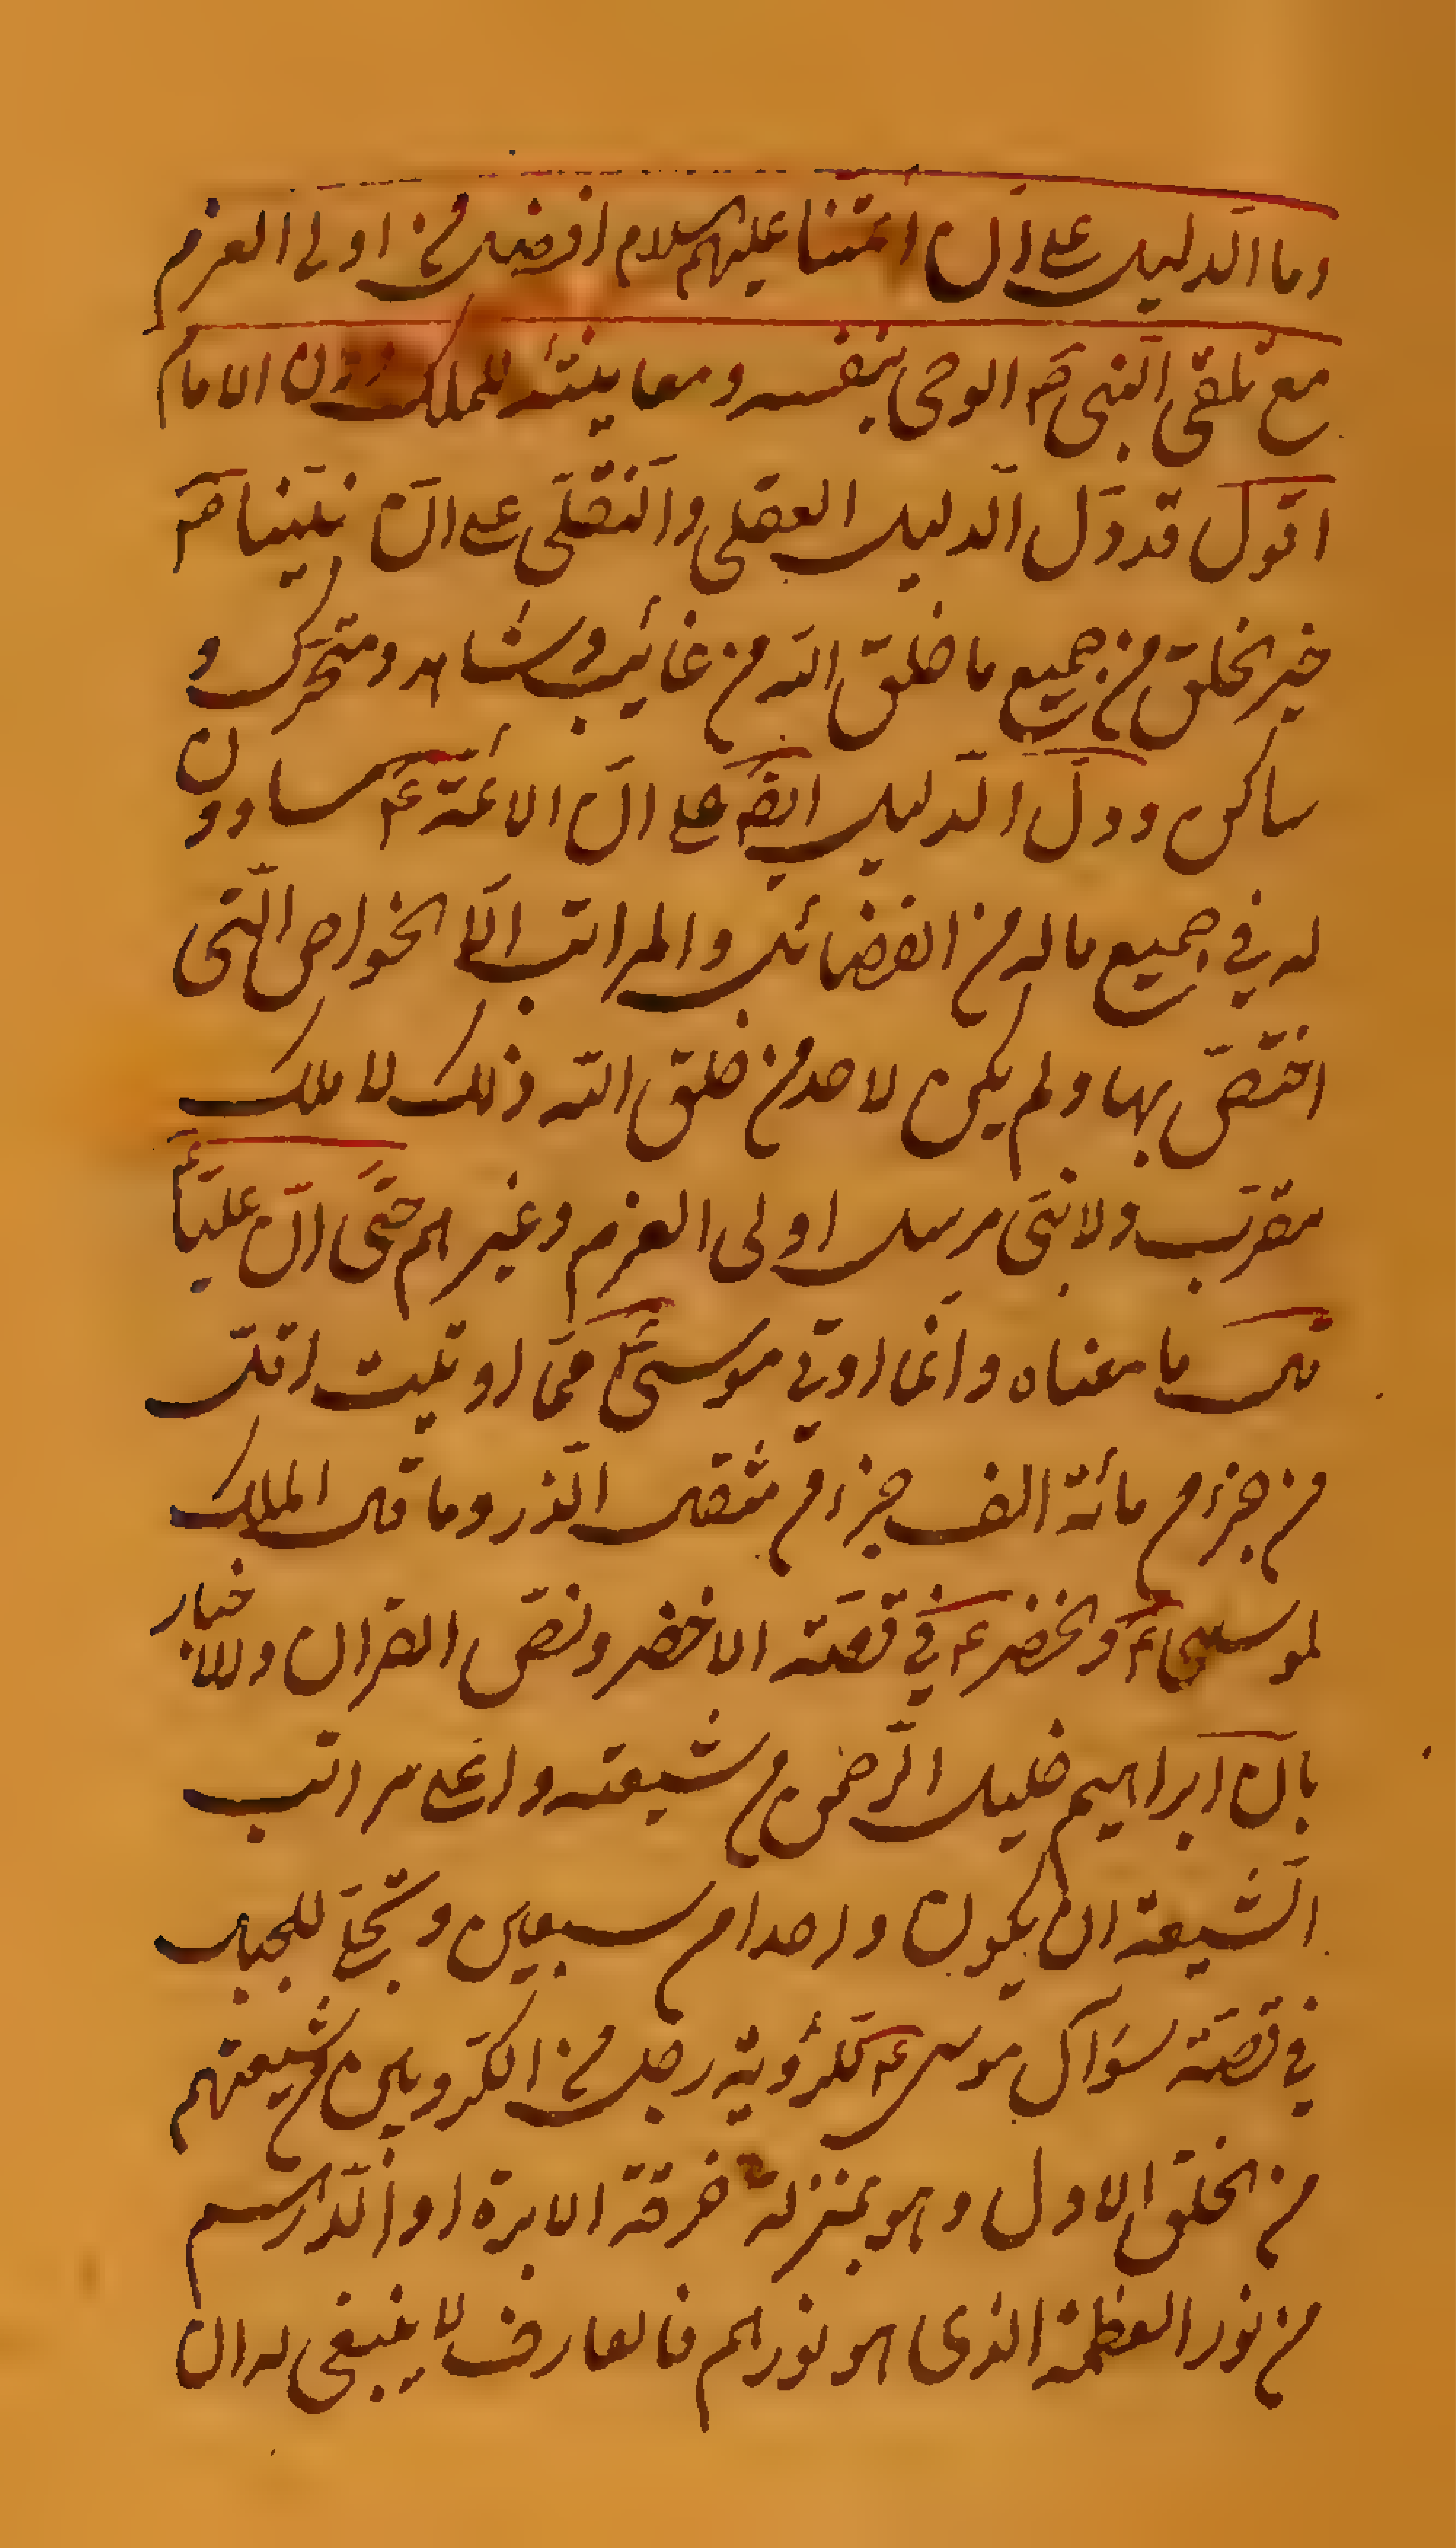 وما الدّليل على انّ ائمّتنا عليهم السلام افضل من اولى العزم
مع تلقّى النّبى صم الوحى بنفسه ومعاينته للملك دون الامام
اقول قد دلّ الدّليل العقلى والنّقلى على انّ نبيّنا صم
خير الخلق من جميع ما خلق الله من غائب وشاهد ومتحرّك و
ساكن ودلّ الدّليل ايضا على انّ الائمّة عم مساوون
له فى جميع ماله من الفضائل والمراتب الّا الخواص الّتى
اختصّ بها ولم يكن لاحد من خلق الله ذلك لا ملك
مقرّب ولا نبى مرسل اولى العزم وغيرهم حتّى انّ عليّا عم
قال ما معناه وانّما اوتى موسى عم ممّا اوتيت اقلّ
من جزء من مائة الف جزء من مثقال الذّر وما قال الملك
لموسى عم والخضر عم فى قصّة الاخضر ونصّ القران والاخبار
بانّ ابراهيم خليل الرّحمن من شيعته واعلى مراتب
الشّيعة ان يكون واحدا من سبعين وتجلّى للجبل
فى قصّة سؤال موسى عم للرّؤية رجل من الكرّوبين من شيعتهم
من الخلق الاول وهو بمنزلة خرقة الابرة او الدّرهم
من نور العظمة الذى هو نورهم فالعارف لا ينبغى له ان